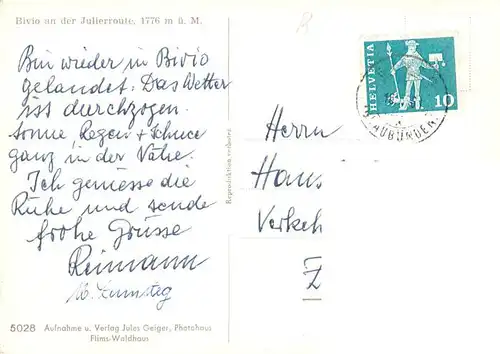 Bivio an der Julierroute, 1776 m ü. M.
Bin wieder in Bivio
gelandet. Das Wetter
ist durchzogen.
Sonne Regen + Schnee
ganz in der Nähe.
Ich geniesse die
Ruhe und sende
frohe Grüsse
Reimann
5028 Aufnahme u. Verlag Jules Geiger, Photohaus
Flims-Waldhaus
Reproduktion verboten
HELVETIA
10
GRAUBÜNDEN
Herrn
Hans
Verkeh
Z